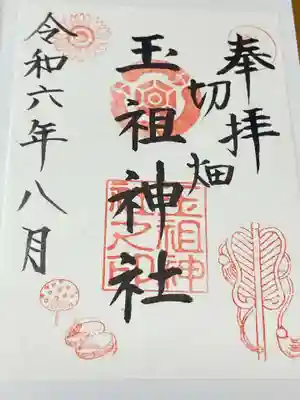 奉拝
切畑
玉祖神社
玉祖神
社之印
令和六年八月